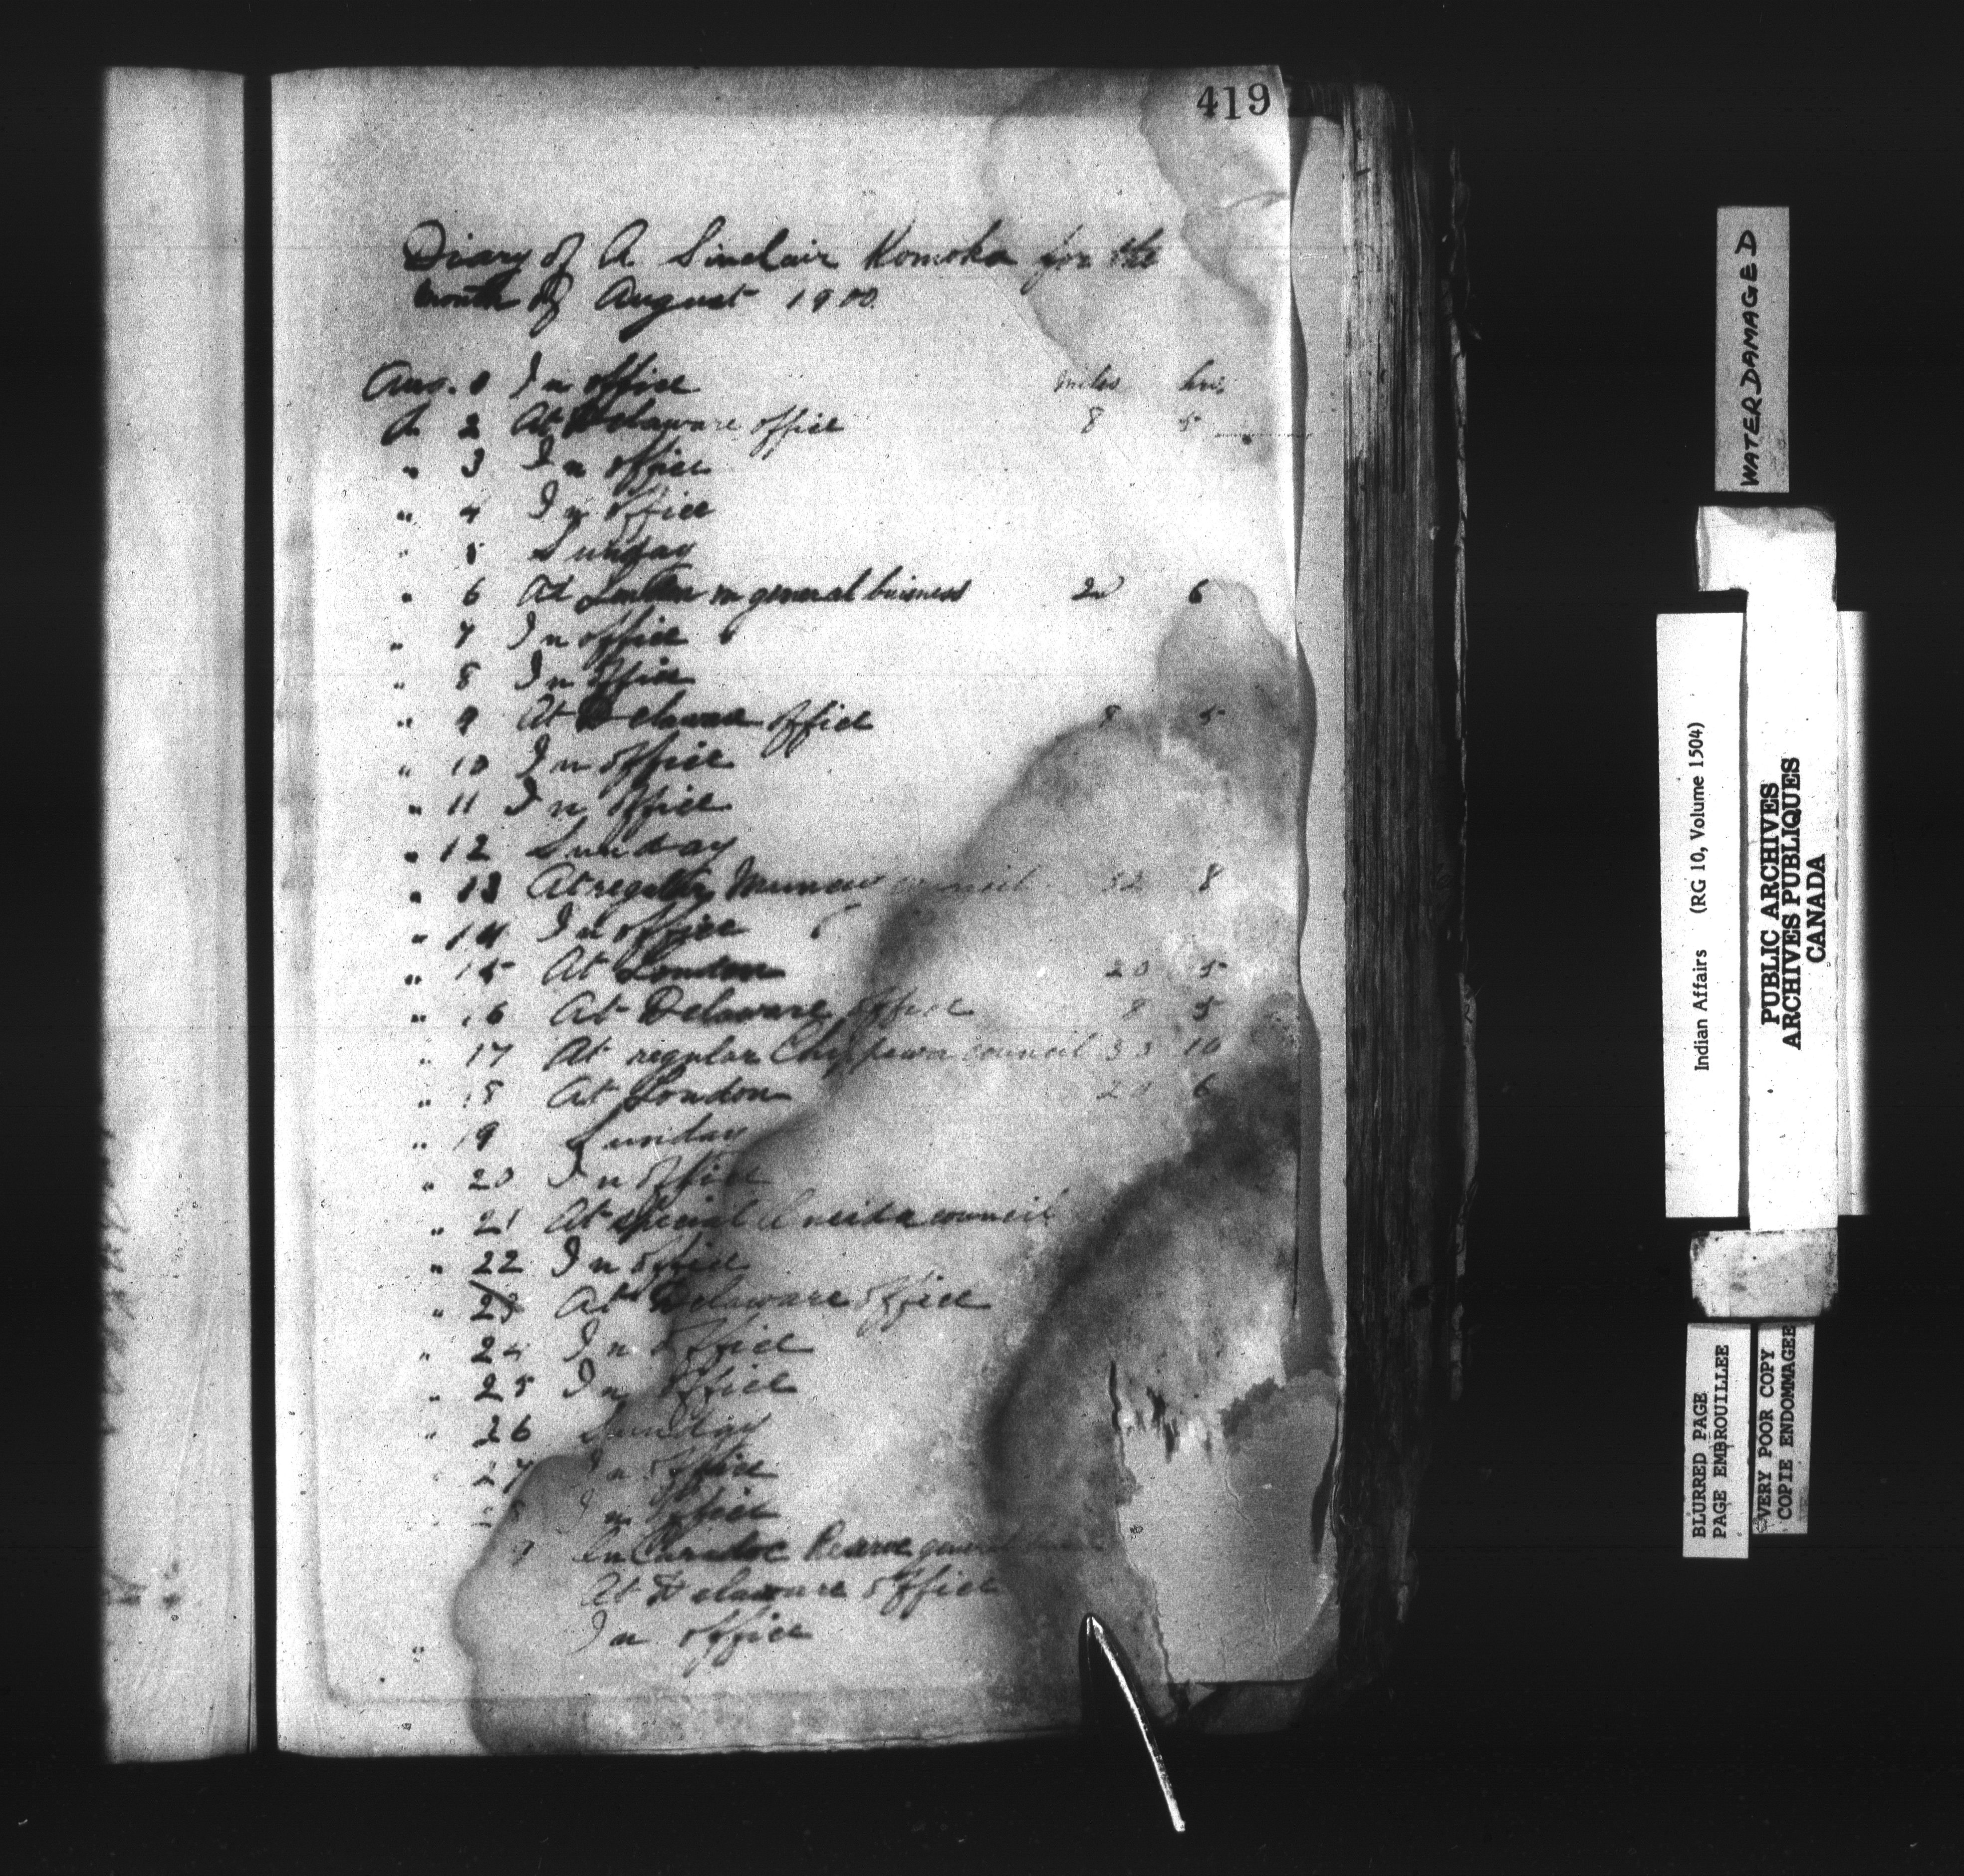 419
Diary of A. Sinclair Komoka for the
month of August 1900.
Aug. 1 In office miles hrs.
2 At Delaware office 8 5
" 3 In office
" 4 In office
" 5 Sunday
" 6 At London on general buisness 20 6
" 7 In office
" 8 In office
" 9 At Delaware office 8 5
" 10 In office
" 11 In office
" 12 Sunday
" 13 At regular Muncey council 32 8
" 14 In office
" 15 At London 20 5
" 16 At Delaware office 8 5
" 17 At regular Chippewa council 33 10
" 18 At London 20 6
" 19 Sunday
" 20 In office
" 21 At special Oneida council
" 22 In office
" 23 At Delaware office
" 24 In office
" 25 In office
" 26 Sunday
27 In office
8 In office
9 In Caradoc Reserve general
At Delaware office
" In office
WATERDAMAGED
Indian Affairs (RG 10, Volume 1504)
PUBLIC ARCHIVES
ARCHIVES PUBLIQUES
CANADA
BLURRED PAGE
PAGE EMBROUILLEE
VERY POOR COPY
COPIE ENDOMMAGEE